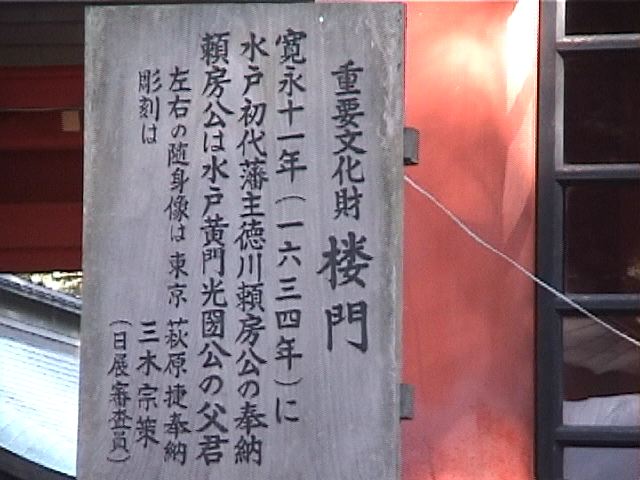 重要文化財 楼門
寛永十一年(一六三四年)に
水戸初代藩主徳川頼房公の奉納
頼房公は水戸黄門光圀公の父君
左右の随身像は 東京 萩原捷奉納
彫刻は 三木宗策
(日展審査員)